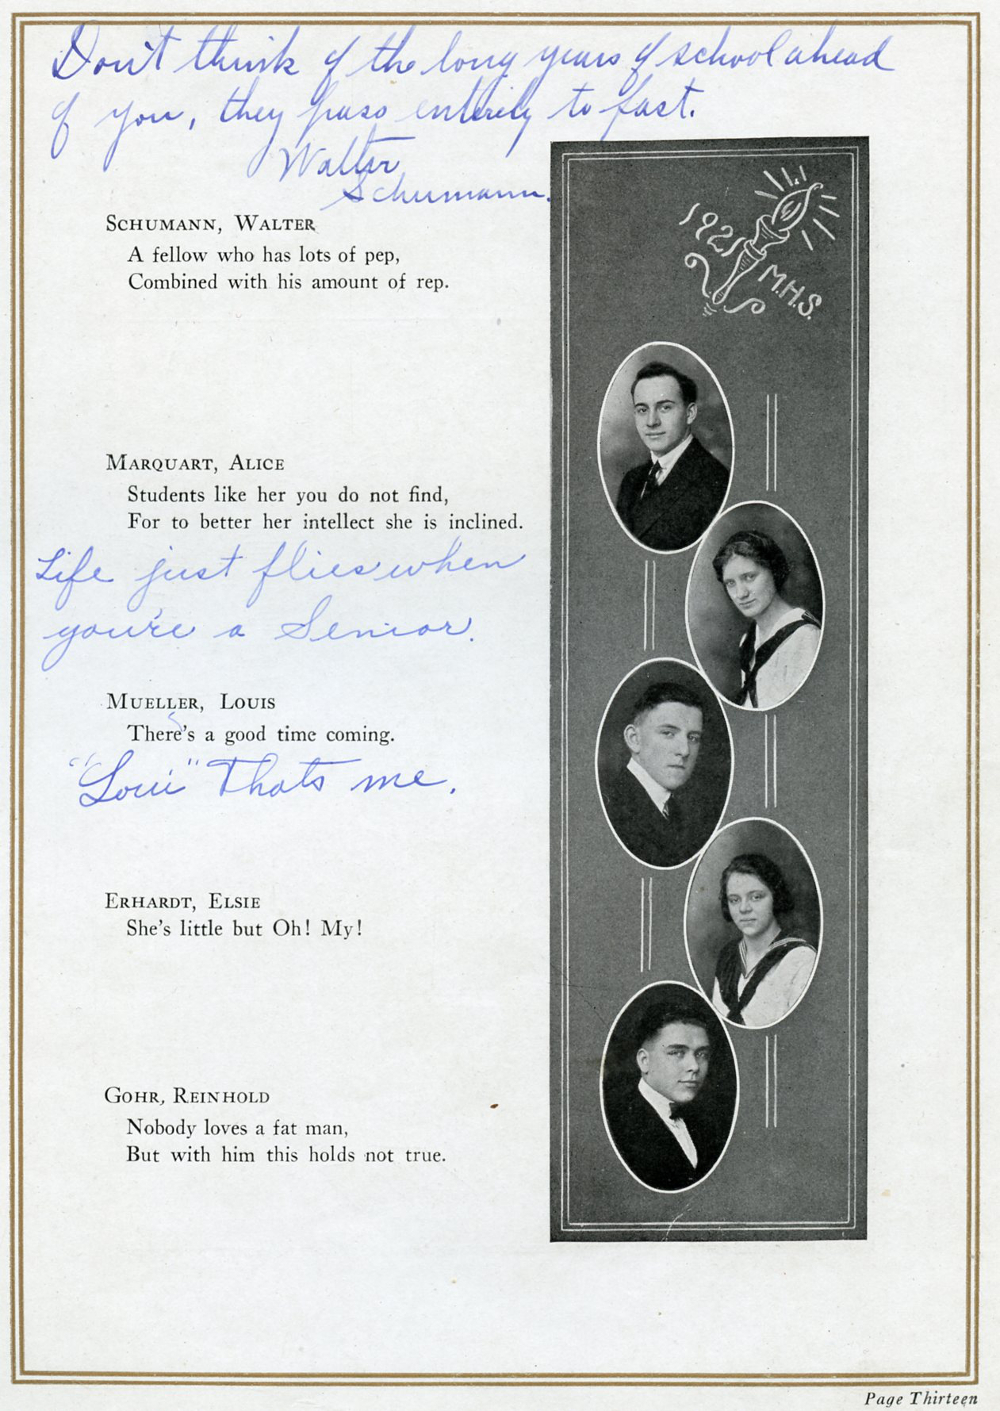 Don't think of the long years of school ahead
of you, they pass entirely to fast.
Walter
Schumann.
SCHUMANN, WALTER
A fellow who has lots of pep,
Combined with his amount of rep.
1921
M.H.S.
MARQUART, ALICE
Students like her you do not find,
For to better her intellect she is inclined.
Life just flies when
you're a Senior.
MUELLER, LOUIS
There's a good time coming.
"Loui" Thats me.
ERHARDT, ELSIE
She's little but Oh! My!
GOHR, REINHOLD
Nobody loves a fat man,
But with him this holds not true.
Page Thirteen